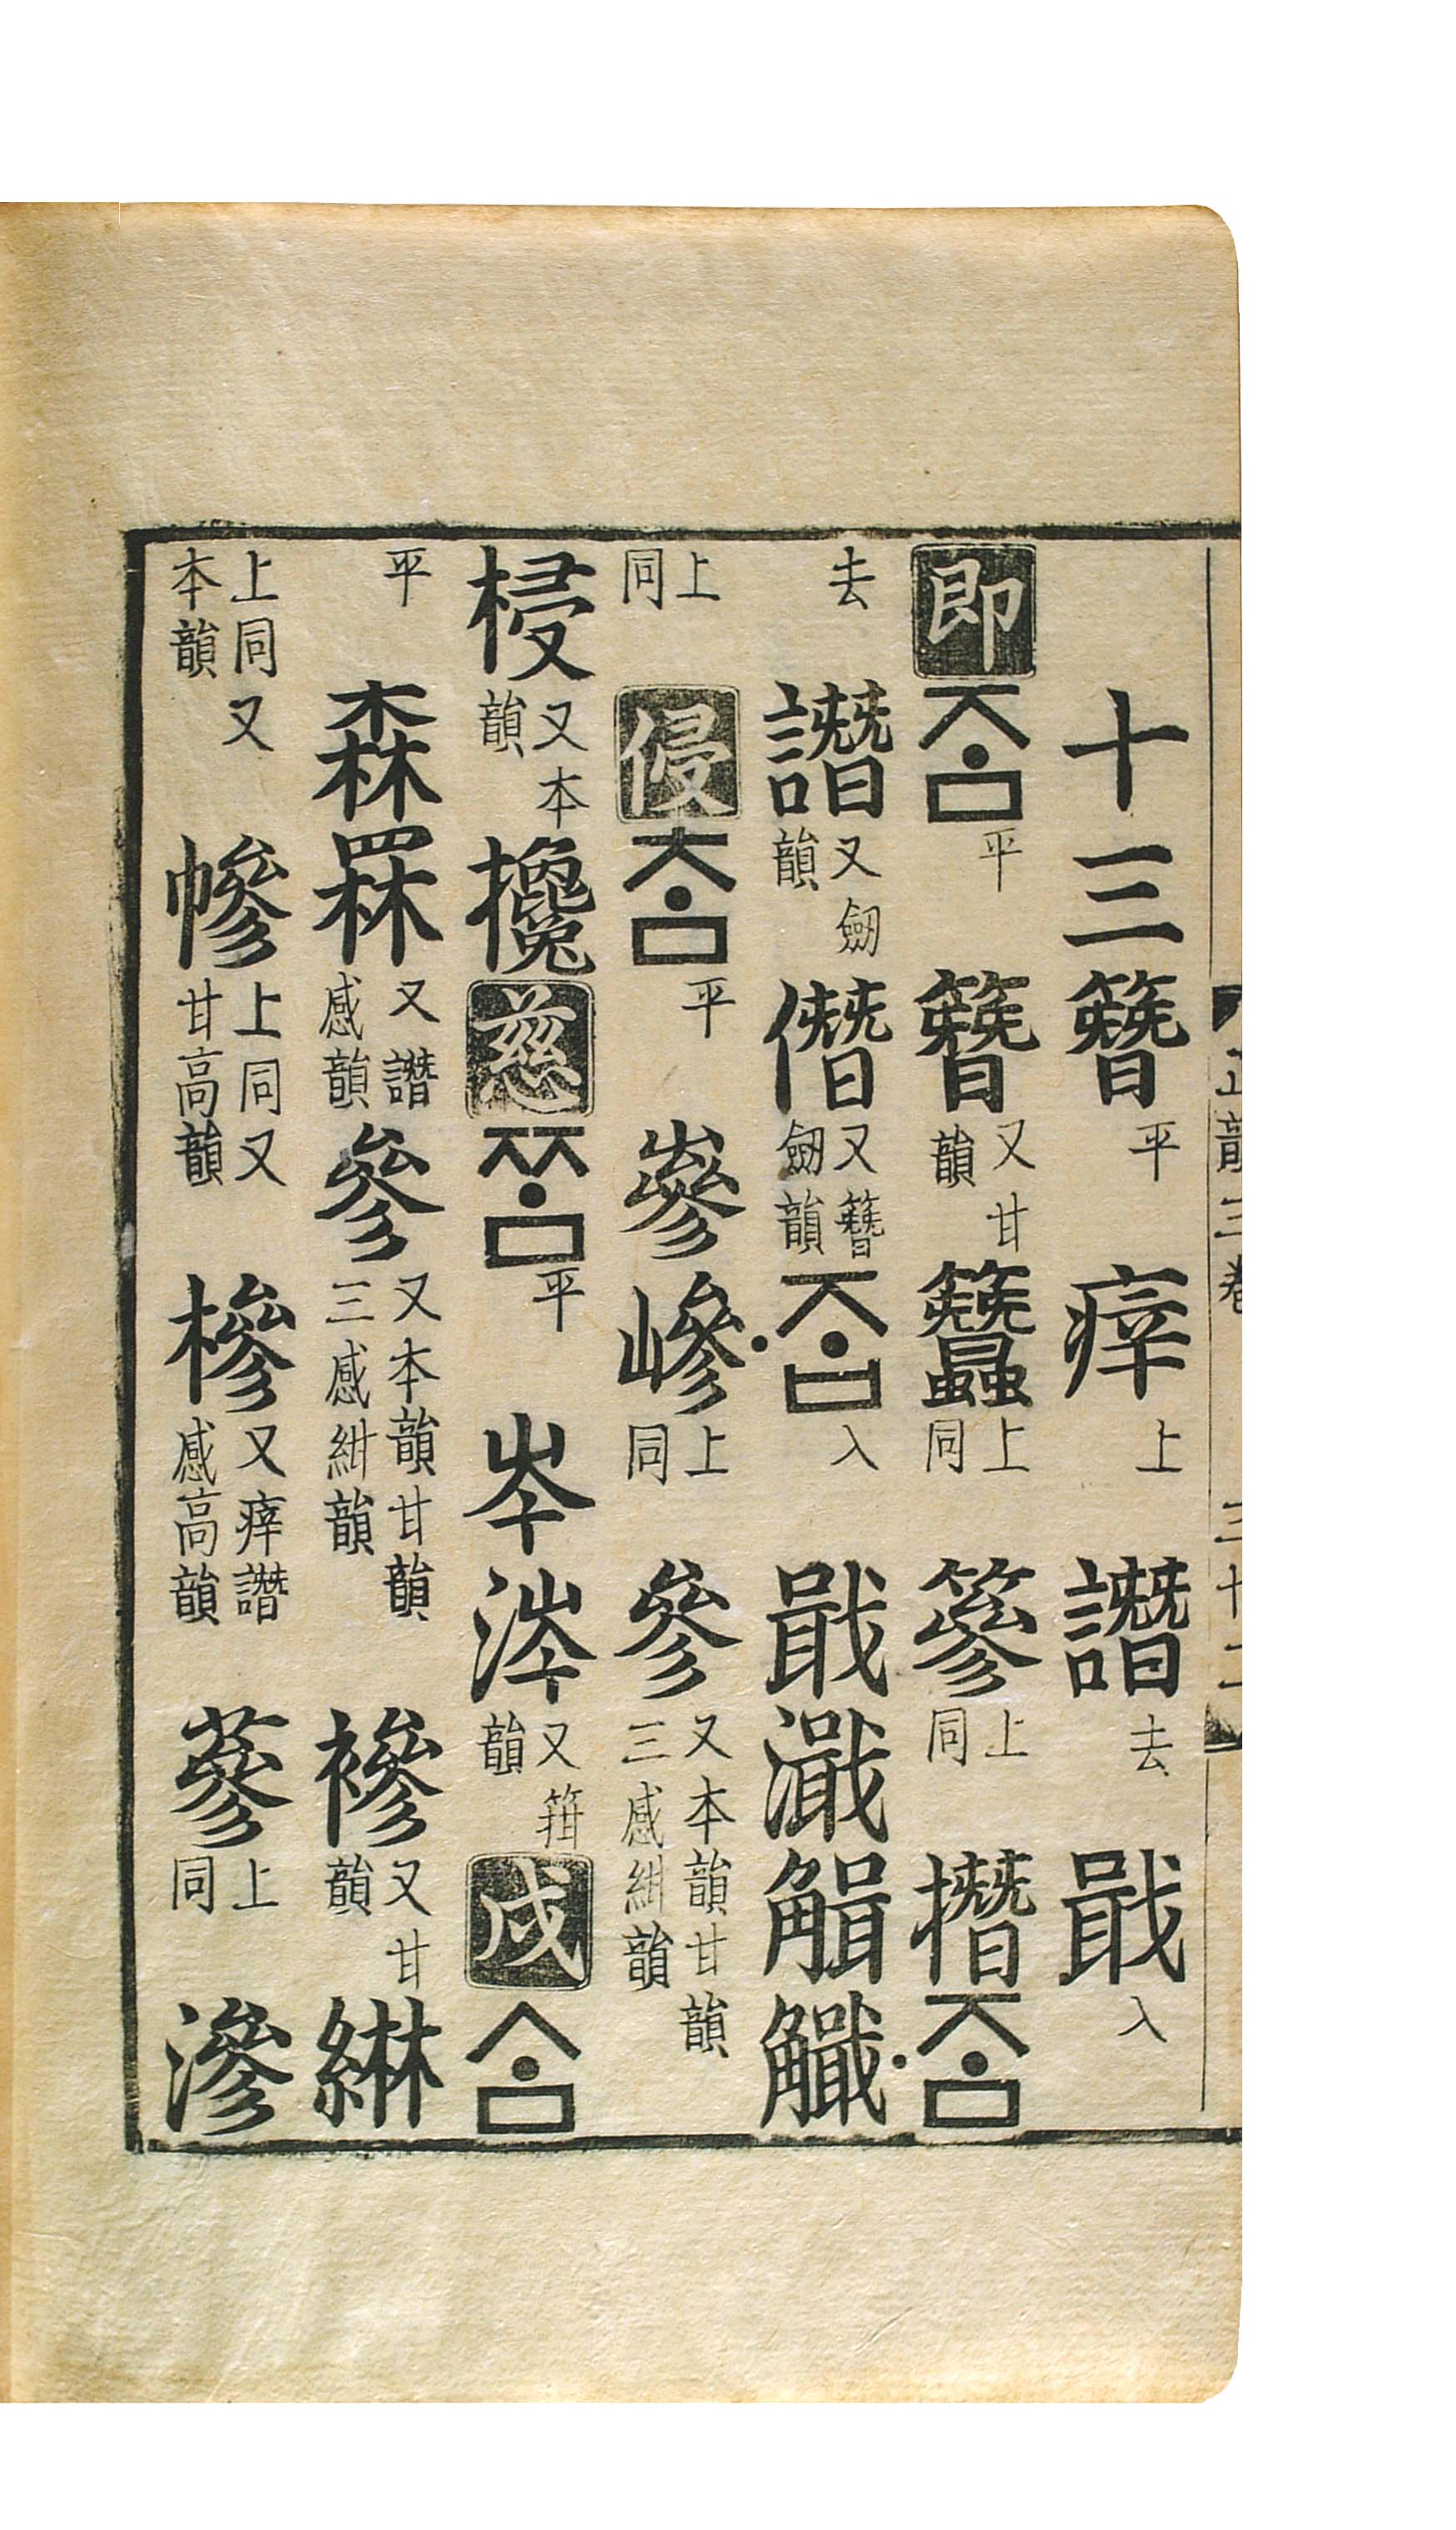 正韻三卷 三十二
十三簪平 㾕上 譖去 戢入
即 ᄌᆞᆷ平 簪又甘韻 上同 篸上同 撍 ᄌᆞᆷ〮
去 譖又劒韻 僭又簪劒韻 ᄌᆞᆸ〮入 戢 濈
上同 侵 ᄎᆞᆷ平 嵾 嵾上同 參又本韻甘韻三感紺韻
梫又本韻 攙 慈 ᄍᆞᆷ平 岑 涔又箝韻 戌 ᄉᆞᆷ
平 森 罧又譖感韻 參又本韻甘韻三感紺韻 襂又甘韻 綝
上同又本韻 幓上同又甘高韻 槮又㾕譖感高韻 蔘上同 滲